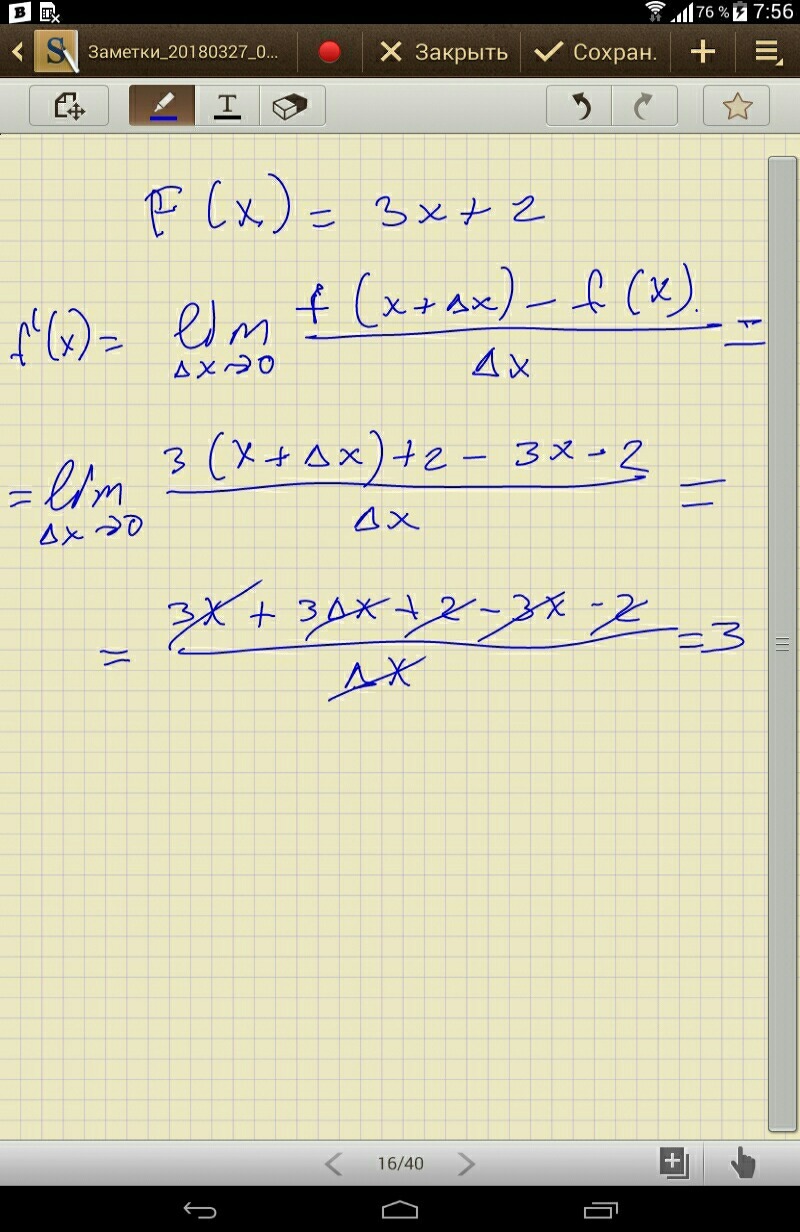 76 % 7:56
Заметки_20180327_0... Закрыть Сохран.
T
F(x) = 3x + 2
f'(x) = lim Δx→0 f(x+Δx) - f(x) / Δx =
= lim Δx→0 3(x+Δx)+2 - 3x - 2 / Δx =
= 3x + 3Δx + 2 - 3x - 2 / Δx = 3
16/40